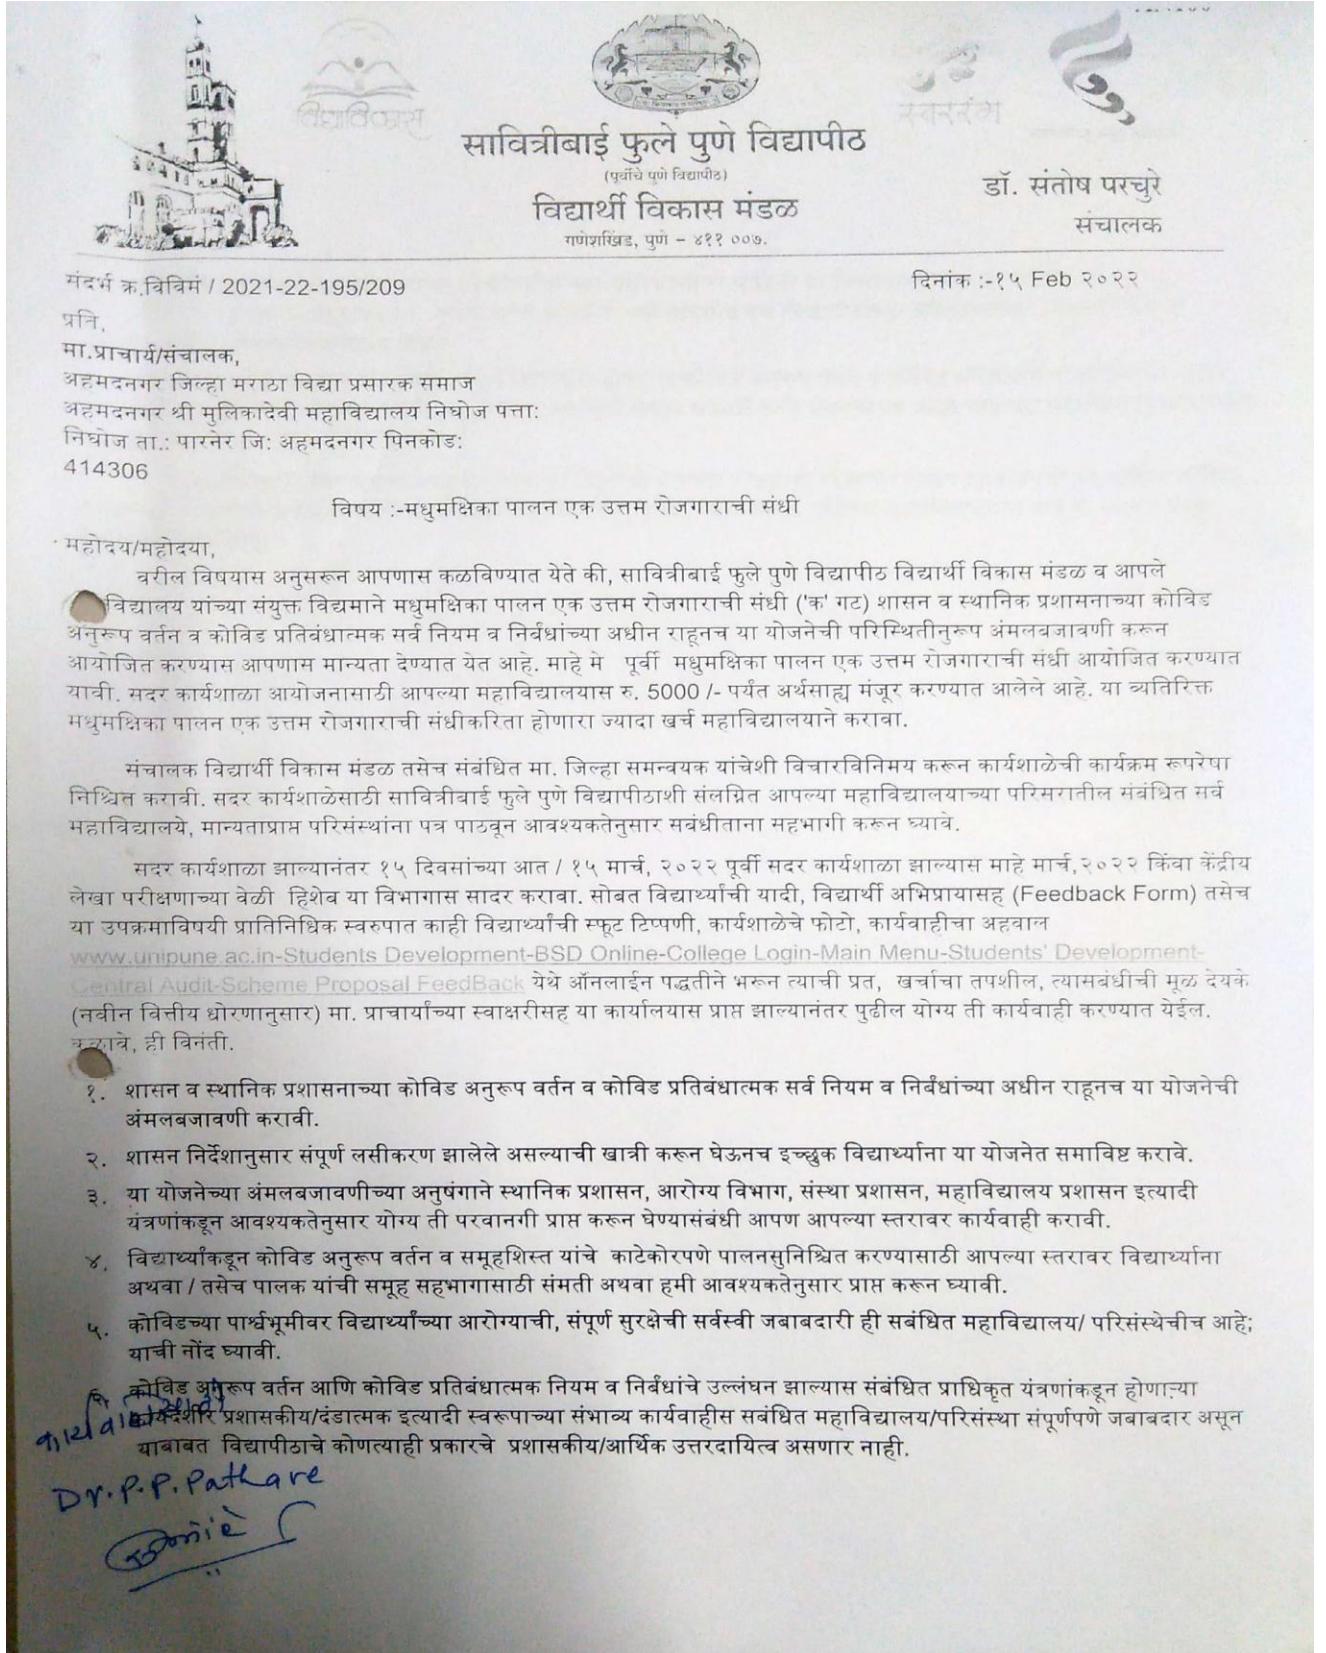 विद्याविकास
स्वररंग
सावित्रीबाई फुले पुणे विद्यापीठ
(पूर्वीचे पुणे विद्यापीठ)
विद्यार्थी विकास मंडळ
गणेशखिंड, पुणे – ४११ ००७.
डॉ. संतोष परचुरे
संचालक
संदर्भ क्र.विविमं / 2021-22-195/209
दिनांक :-१५ Feb २०२२
प्रति,
मा.प्राचार्य/संचालक,
अहमदनगर जिल्हा मराठा विद्या प्रसारक समाज
अहमदनगर श्री मुलिकादेवी महाविद्यालय निघोज पत्ता:
निघोज ता.: पारनेर जि: अहमदनगर पिनकोड:
414306
विषय :-मधुमक्षिका पालन एक उत्तम रोजगाराची संधी
महोदय/महोदया,
वरील विषयास अनुसरून आपणास कळविण्यात येते की, सावित्रीबाई फुले पुणे विद्यापीठ विद्यार्थी विकास मंडळ व आपले
विद्यालय यांच्या संयुक्त विद्यमाने मधुमक्षिका पालन एक उत्तम रोजगाराची संधी ('क' गट) शासन व स्थानिक प्रशासनाच्या कोविड
अनुरूप वर्तन व कोविड प्रतिबंधात्मक सर्व नियम व निर्बंधांच्या अधीन राहूनच या योजनेची परिस्थितीनुरूप अंमलबजावणी करून
आयोजित करण्यास आपणास मान्यता देण्यात येत आहे. माहे मे पूर्वी मधुमक्षिका पालन एक उत्तम रोजगाराची संधी आयोजित करण्यात
यावी. सदर कार्यशाळा आयोजनासाठी आपल्या महाविद्यालयास रु. 5000 /- पर्यंत अर्थसाह्य मंजूर करण्यात आलेले आहे. या व्यतिरिक्त
मधुमक्षिका पालन एक उत्तम रोजगाराची संधीकरिता होणारा ज्यादा खर्च महाविद्यालयाने करावा.
संचालक विद्यार्थी विकास मंडळ तसेच संबंधित मा. जिल्हा समन्वयक यांचेशी विचारविनिमय करून कार्यशाळेची कार्यक्रम रूपरेषा
निश्चित करावी. सदर कार्यशाळेसाठी सावित्रीबाई फुले पुणे विद्यापीठाशी संलग्नित आपल्या महाविद्यालयाच्या परिसरातील संबंधित सर्व
महाविद्यालये, मान्यताप्राप्त परिसंस्थांना पत्र पाठवून आवश्यकतेनुसार सबंधीताना सहभागी करून घ्यावे.
सदर कार्यशाळा झाल्यानंतर १५ दिवसांच्या आत / १५ मार्च, २०२२ पूर्वी सदर कार्यशाळा झाल्यास माहे मार्च,२०२२ किंवा केंद्रीय
लेखा परीक्षणाच्या वेळी हिशेब या विभागास सादर करावा. सोबत विद्यार्थ्यांची यादी, विद्यार्थी अभिप्रायासह (Feedback Form) तसेच
या उपक्रमाविषयी प्रातिनिधिक स्वरुपात काही विद्यार्थ्यांची स्फूट टिप्पणी, कार्यशाळेचे फोटो, कार्यवाहीचा अहवाल
www.unipune.ac.in-Students Development-BSD Online-College Login-Main Menu-Students' Development-
Central Audit-Scheme Proposal FeedBack येथे ऑनलाईन पद्धतीने भरून त्याची प्रत, खर्चाचा तपशील, त्यासबंधीची मूळ देयके
(नवीन वित्तीय धोरणानुसार) मा. प्राचार्यांच्या स्वाक्षरीसह या कार्यालयास प्राप्त झाल्यानंतर पुढील योग्य ती कार्यवाही करण्यात येईल.
कळावे, ही विनंती.
१. शासन व स्थानिक प्रशासनाच्या कोविड अनुरूप वर्तन व कोविड प्रतिबंधात्मक सर्व नियम व निर्बंधांच्या अधीन राहूनच या योजनेची
अंमलबजावणी करावी.
२. शासन निर्देशानुसार संपूर्ण लसीकरण झालेले असल्याची खात्री करून घेऊनच इच्छुक विद्यार्थ्याना या योजनेत समाविष्ट करावे.
३. या योजनेच्या अंमलबजावणीच्या अनुषंगाने स्थानिक प्रशासन, आरोग्य विभाग, संस्था प्रशासन, महाविद्यालय प्रशासन इत्यादी
यंत्रणांकडून आवश्यकतेनुसार योग्य ती परवानगी प्राप्त करून घेण्यासंबंधी आपण आपल्या स्तरावर कार्यवाही करावी.
४. विद्यार्थ्यांकडून कोविड अनुरूप वर्तन व समूहशिस्त यांचे काटेकोरपणे पालनसुनिश्चित करण्यासाठी आपल्या स्तरावर विद्यार्थ्याना
अथवा / तसेच पालक यांची समूह सहभागासाठी संमती अथवा हमी आवश्यकतेनुसार प्राप्त करून घ्यावी.
५. कोविडच्या पार्श्वभूमीवर विद्यार्थ्यांच्या आरोग्याची, संपूर्ण सुरक्षेची सर्वस्वी जबाबदारी ही सबंधित महाविद्यालय/ परिसंस्थेचीच आहे;
याची नोंद घ्यावी.
६. कोविड अनुरूप वर्तन आणि कोविड प्रतिबंधात्मक नियम व निर्बंधांचे उल्लंघन झाल्यास संबंधित प्राधिकृत यंत्रणांकडून होणाऱ्या
कायदेशीर प्रशासकीय/दंडात्मक इत्यादी स्वरूपाच्या संभाव्य कार्यवाहीस सबंधित महाविद्यालय/परिसंस्था संपूर्णपणे जबाबदार असून
याबाबत विद्यापीठाचे कोणत्याही प्रकारचे प्रशासकीय/आर्थिक उत्तरदायित्व असणार नाही.
Dr. P. P. Pathare